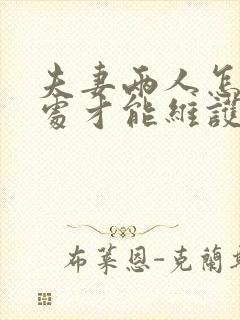 夫妻兩人怎
處才能維護
布萊恩-克蘭